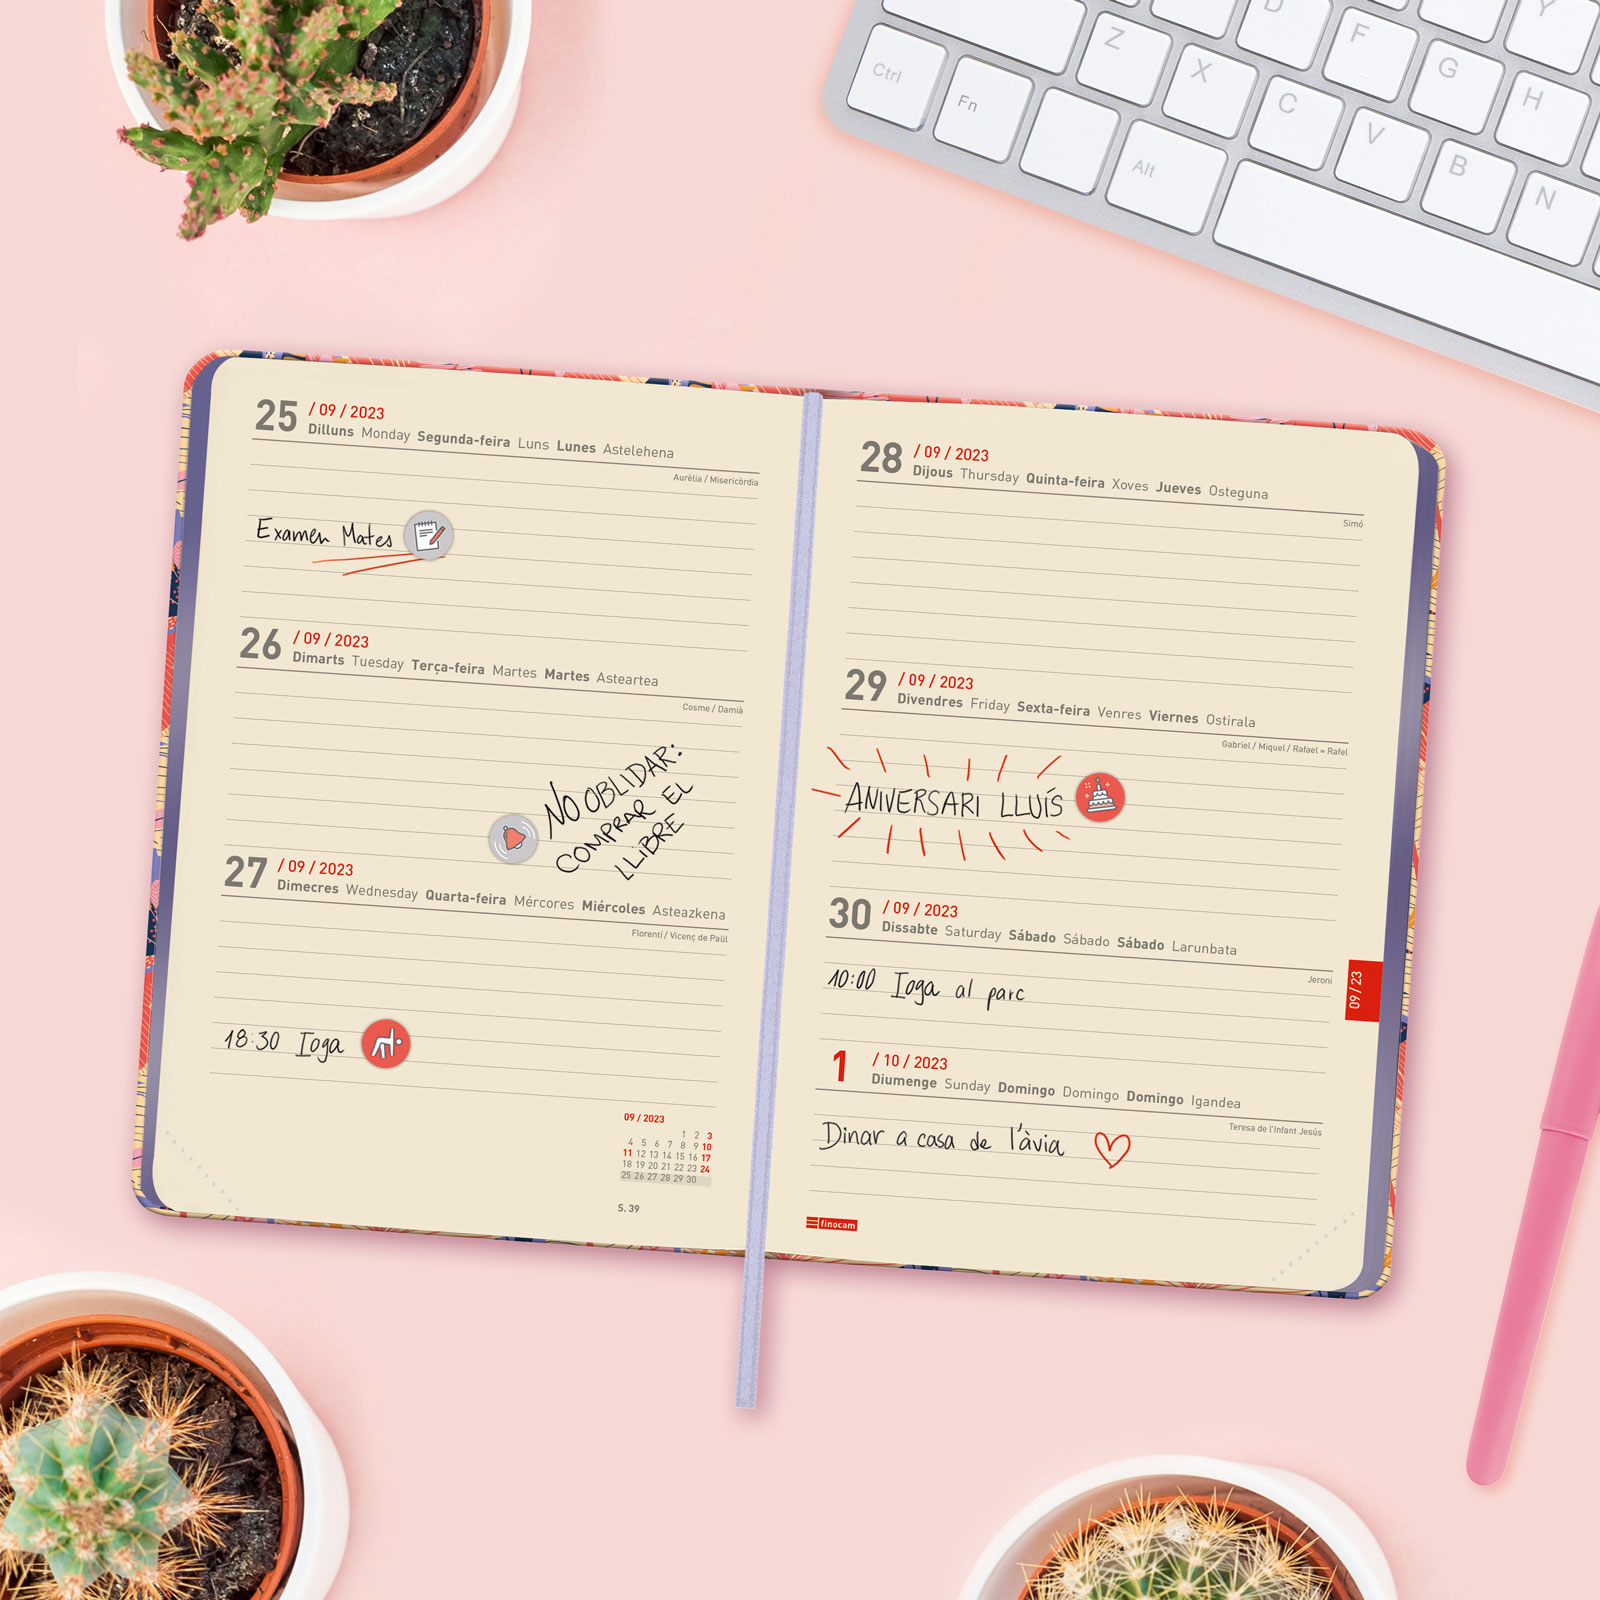 25 / 09 / 2023
Dilluns Monday Segunda-feira Luns Lunes Astelehena
Aurèlia / Misericòrdia
Examen Mates
26 / 09 / 2023
Dimarts Tuesday Terça-feira Martes Martes Asteartea
Cosme / Damià
NO OBLIDAR:
COMPRAR EL
LLIBRE
27 / 09 / 2023
Dimecres Wednesday Quarta-feira Mércores Miércoles Asteazkena
Florentí / Vicenç de Paül
18:30 Ioga
09 / 2023
1 2 3
4 5 6 7 8 9 10
11 12 13 14 15 16 17
18 19 20 21 22 23 24
25 26 27 28 29 30
S. 39
28 / 09 / 2023
Dijous Thursday Quinta-feira Xoves Jueves Osteguna
Simó
29 / 09 / 2023
Divendres Friday Sexta-feira Venres Viernes Ostirala
Gabriel / Miquel / Rafael = Rafel
ANIVERSARI LLUÍS
30 / 09 / 2023
Dissabte Saturday Sábado Sábado Sábado Larunbata
Jeroni
10:00 Ioga al parc
09 / 23
1 / 10 / 2023
Diumenge Sunday Domingo Domingo Domingo Igandea
Teresa de l'Infant Jesús
Dinar a casa de l'àvia
finocam
D F Y
Z X C G H
Ctrl Fn Alt V B N